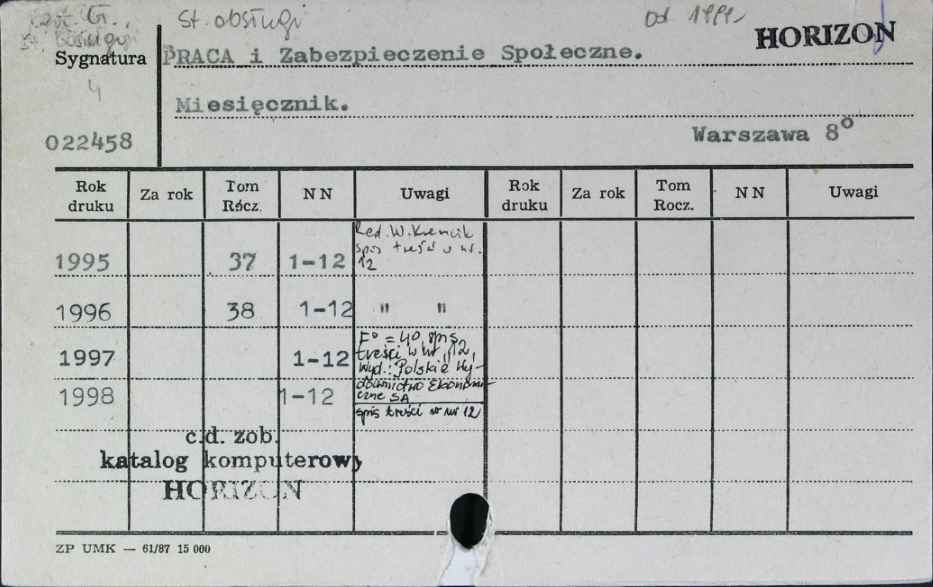 St. obsługi
Od
HORIZON
Sygnatura
PRACA i Zabezpieczenie Społeczne.
4
Miesięcznik.
022458
Warszawa 8°
Rok druku Za rok Tom Rocz. N N Uwagi Rok druku Za rok Tom Rocz. N N Uwagi
Red. W.
spis treści w nr.
1995 37 1-12 12
1996 38 1-12 " "
F° = 40, spis
1997 1-12 treści w nr 12,
Wyd.: Polskie Wy-
dawnictwo Ekonomi-
1998 1-12 czne SA
spis treści w nr 12
c.d. zob.
katalog komputerowy
HORIZON
ZP UMK — 61/87 15 000